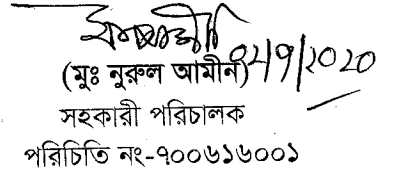 ০৮/৭/২০২০
(মুঃ নুরুল আমীন)
সহকারী পরিচালক
পরিচিতি নং-৭০০৬১৬০০১